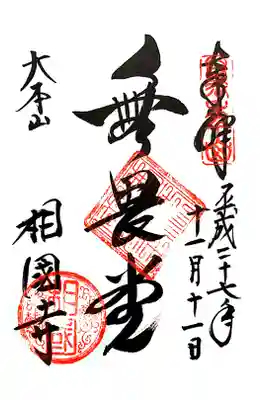 奉拝 平成二十七年
十一月十一日
無畏堂
大本山
相國寺